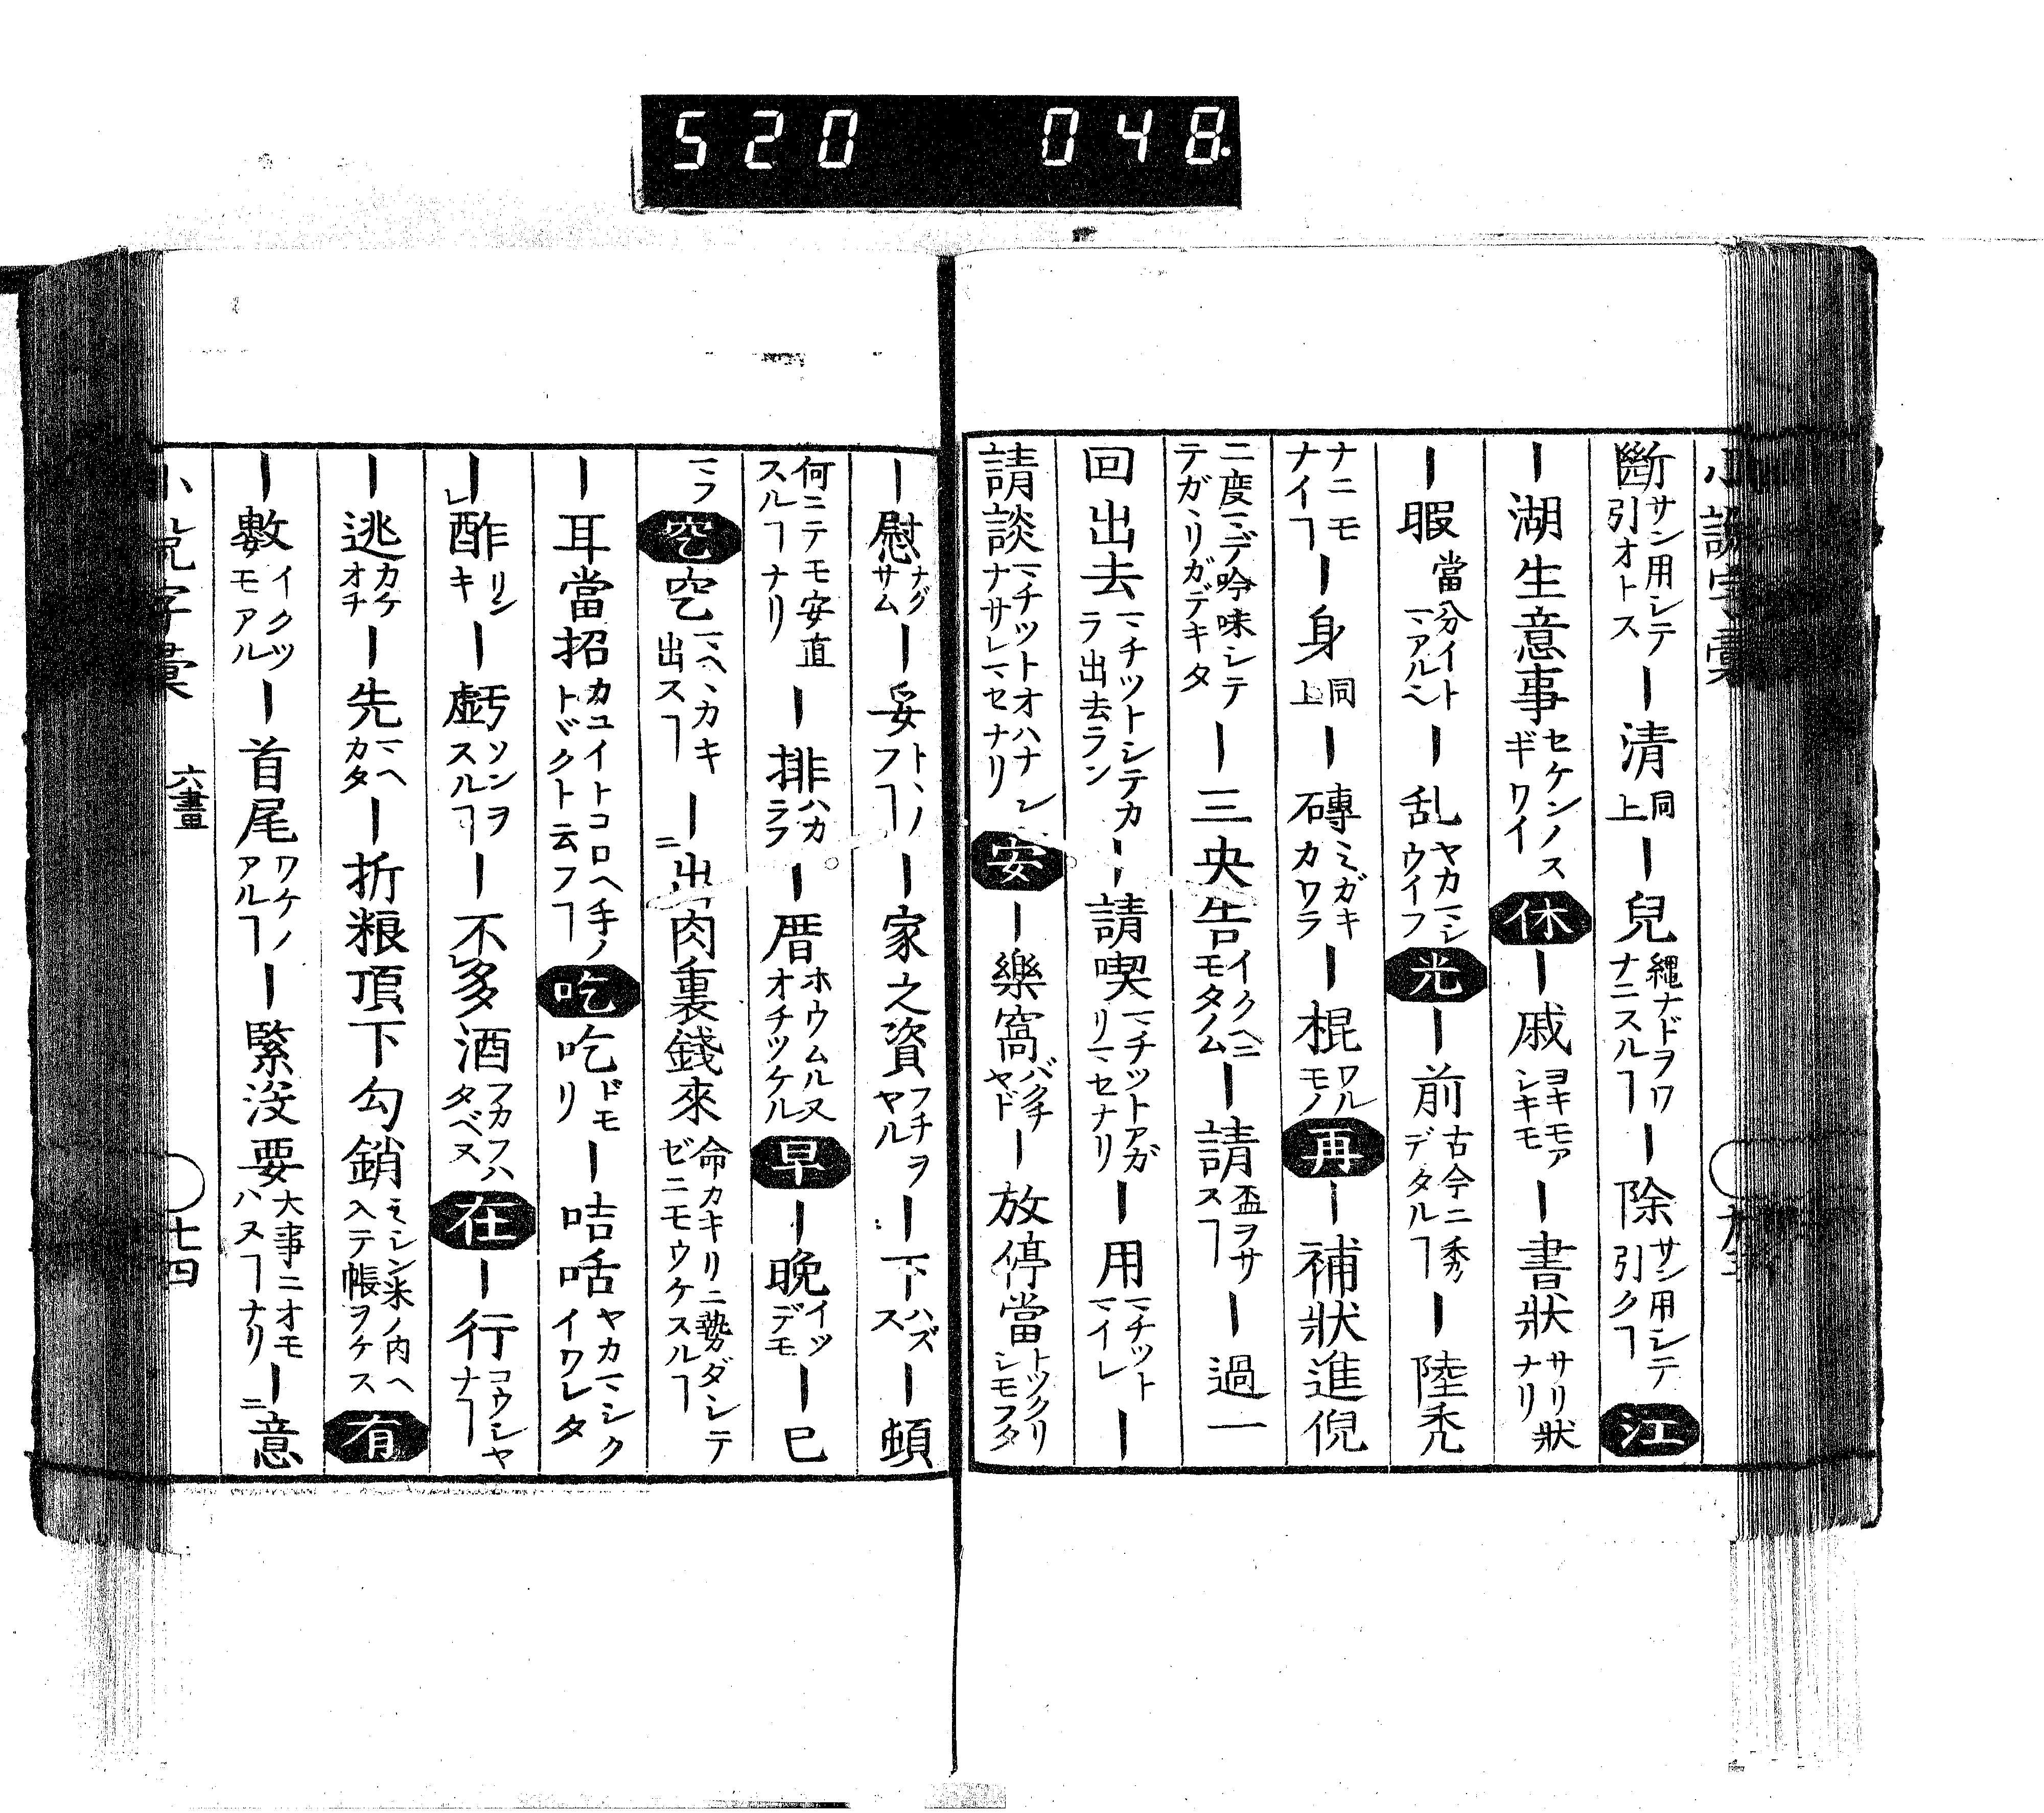 520 048.
斷サン用シテ引オトス｜清同上｜兒縄ナドヲワナニスルヿ｜除サン用シテ引クヿ江
｜湖生意事セケンノスギワイ休｜戚ヨキモアシキモ｜書狀サリ狀ナリ
｜暇當分イトマアルヘ｜乱ヤカマシウイフ光｜前古今ニ秀デタルヿ｜陸禿
ナニモナイヿ｜身同上｜磚ミガキカワラ｜棍ワルモノ再｜補狀進倪
二度マデ吟味シテテガヽリガデキタ｜三央告イクヘニモタノム｜請盃ヲサスヿ｜過一
回出去マチツトシテカラ出去ラン｜請喫マチツトアガリマセナリ｜用マチツトマイレ｜
請談マチツトオハナシナサレマセナリ安｜樂窩バクチヤド｜放停當トツクリシモフタ
｜慰ナグサム｜妥トヽノフヿ｜家之資フチヲヤル｜下ハズス｜頓
何ニテモ安直スルヿナリ｜排ハカラフ｜厝ホウムル又オチツケル早｜晩イツデモ｜已
マフ空空マヘヽカキ出スヿ｜出肉裏錢來命カキリニ勢ダシテゼニモウケスルヿ
｜耳當招カユイトコロヘ手ノトヾクト云フヿ吃吃ドモリ｜咭咶ヤカマシクイワレタ
｜酢リンキ｜虧ソンヲスルヿ｜不多酒フカフハタベヌ在｜行コウシヤナヿ
｜逃カケオチ｜先マヘカタ｜折粮頂下勾銷ミシン米ノ内ヘ入テ帳ヲケス有
｜數イクツモアル｜首尾ワケノアルヿ｜緊没要大事ニオモハヌヿナリ｜意
小説字彙 六畫 七四